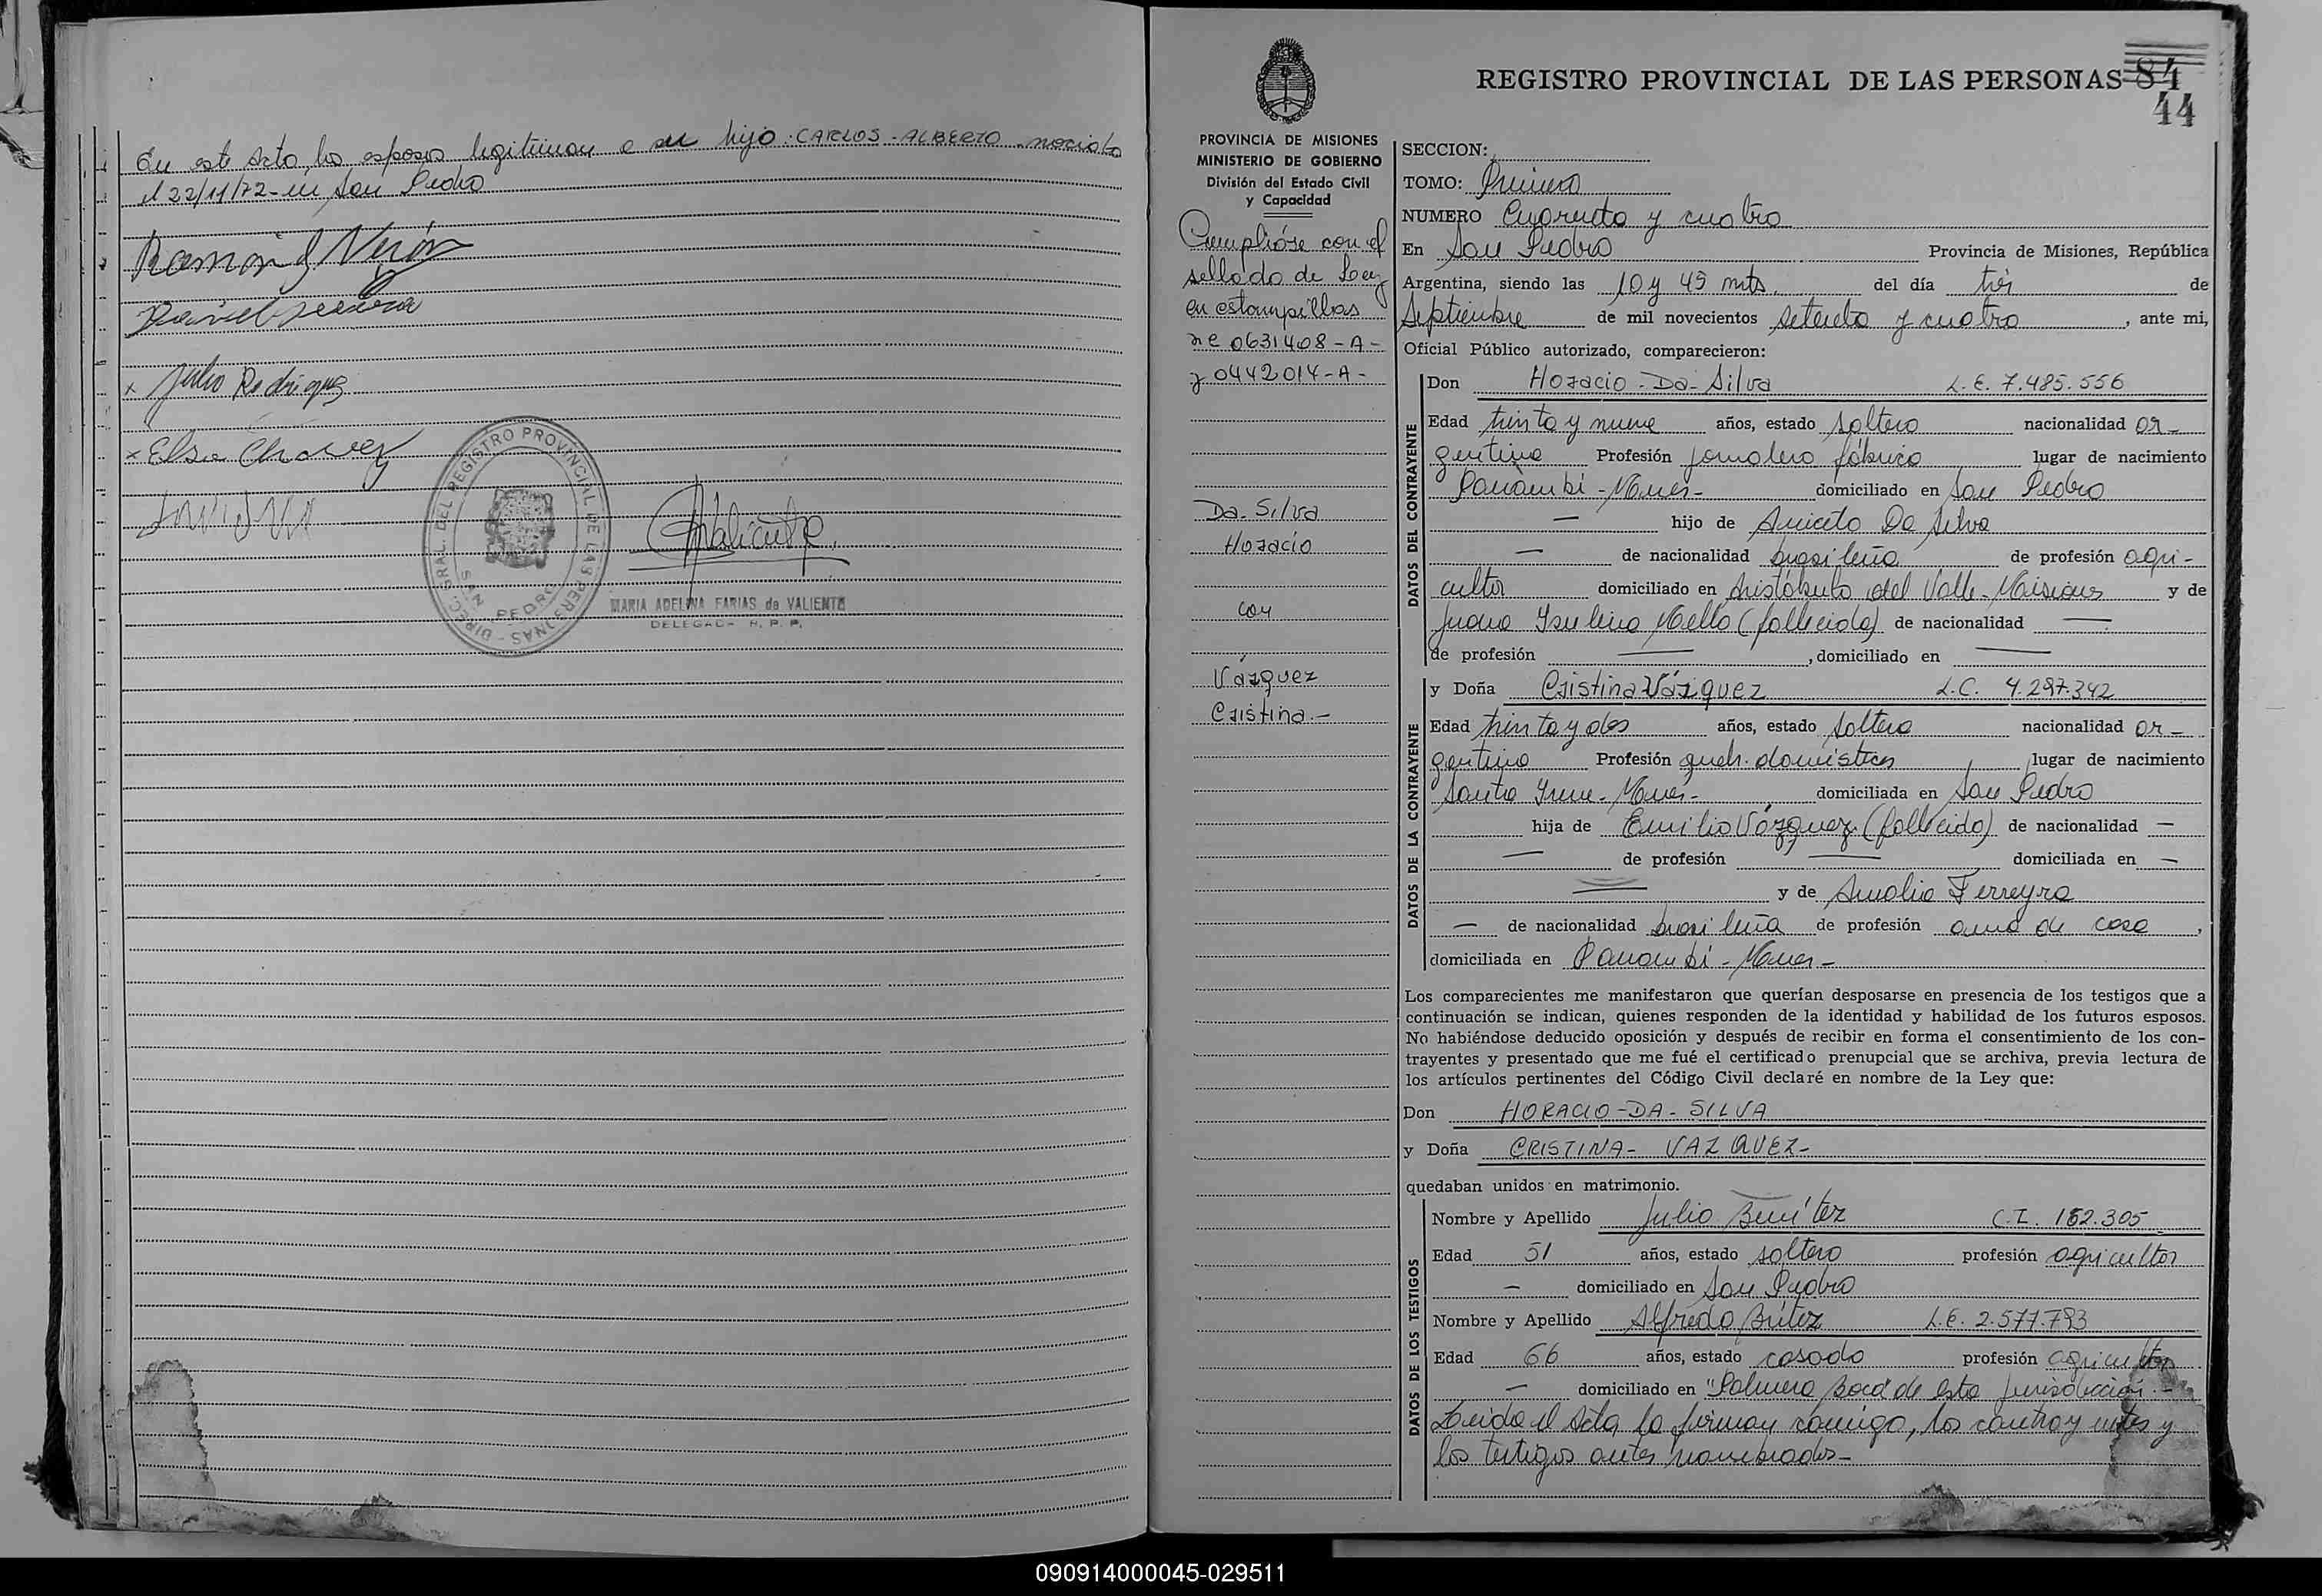 En este Acto los esposos legitiman a su hijo: CARLOS-ALBERTO-nacido
el 22/11/72-en San Pedro
Ramón Verón
x Julio Rodriguez
x Elsa Chavez
DIREC. GRAL. DEL REGISTRO PROVINCIAL DE LAS PERSONAS -
SAN PEDRO
MARIA ADELINA FARIAS de VALIENTE
DELEGADA R. P. P.
REGISTRO PROVINCIAL DE LAS PERSONAS 84
44
PROVINCIA DE MISIONES
MINISTERIO DE GOBIERNO
División del Estado Civil
y Capacidad
Cumplióse con el
sellado de Ley
en estampillas
nº 0631408-A-
y 0442014-A-
Da-Silva
Horacio
con
Vázquez
Cristina.-
SECCION:
TOMO: Primero
NUMERO Cuarenta y cuatro
En San Pedro Provincia de Misiones, República
Argentina, siendo las 10 y 45 mts. del día tres de
Septiembre de mil novecientos setenta y cuatro, ante mi,
Oficial Público autorizado, comparecieron:
DATOS DEL CONTRAYENTE
Don Horacio-Da-Silva L.E. 7.485.556
Edad treinta y nueve años, estado soltero nacionalidad ar-
gentina Profesión jornalero fábrica lugar de nacimiento
Panambí-Mnes- domiciliado en San Pedro
— hijo de Aniceto Da Silva
— de nacionalidad brasileña de profesión agri-
cultor domiciliado en Aristóbulo del Valle-Misiones y de
Juana Isulina Mello (fallecida) de nacionalidad —
de profesión —, domiciliado en —
DATOS DE LA CONTRAYENTE
y Doña Cristina Vázquez L.C. 4.297.342
Edad treinta y dos años, estado soltera nacionalidad ar-
gentina Profesión queh. domésticos lugar de nacimiento
Santa Irene-Mnes- domiciliada en San Pedro
hija de Emilio Vázquez (fallecido) de nacionalidad —
— de profesión — domiciliada en —
— y de Amalia Ferreyra
— de nacionalidad brasileña de profesión ama de casa,
domiciliada en Panambí-Mnes-
Los comparecientes me manifestaron que querían desposarse en presencia de los testigos que a
continuación se indican, quienes responden de la identidad y habilidad de los futuros esposos.
No habiéndose deducido oposición y después de recibir en forma el consentimiento de los con-
trayentes y presentado que me fué el certificado prenupcial que se archiva, previa lectura de
los artículos pertinentes del Código Civil declaré en nombre de la Ley que:
Don HORACIO-DA-SILVA
y Doña CRISTINA- VAZQUEZ-
quedaban unidos en matrimonio.
DATOS DE LOS TESTIGOS
Nombre y Apellido Julio Benítez C.I. 152.305
Edad 51 años, estado soltero profesión agricultor
— domiciliado en San Pedro
Nombre y Apellido Alfredo L.E. 2.577.793
Edad 66 años, estado casado profesión agricultor
— domiciliado en "Palmera Boca" de esta jurisdicción.-
Leída el Acta, la firman conmigo, los contrayentes y
los testigos antes nombrados-
090914000045-029511